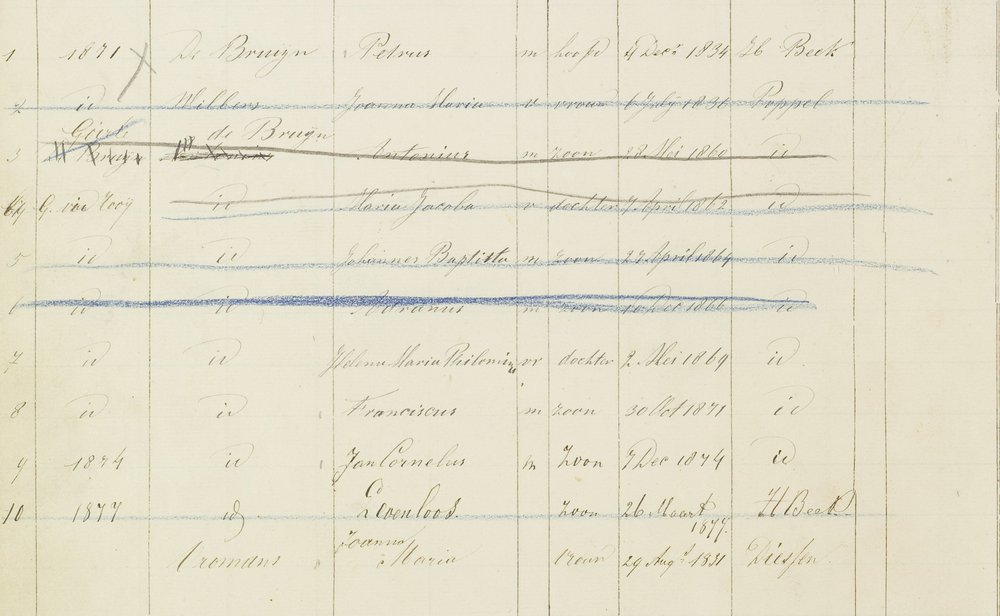 1 1871 De Bruijn Petrus m hoofd 4 Dec 1834 H Beek
2 id Wilbers Joanna Maria v vrouw 6 July 1836 Poppel
Goirle de Bruijn
3 Antonius m zoon 28 Mei 1860 id
G. van Rooij id Maria Jacoba v dochter 7 April 1862 id
5 id id Johannes Baptista m zoon 27 April 1864 id
6 id id Adrianus m zoon 10 Dec 1866 id
7 id id Helena Maria Philomina vr dochter 2 Mei 1869 id
8 id id Franciscus m zoon 30 Oct 1871 id
9 1874 id Jan Cornelus m Zoon 7 Dec 1874 id
10 1877 id Levenloos Zoon 26 Maart 1877 H Beek
Cromans Joanna Maria vrouw 29 Augt 1831 Diessen